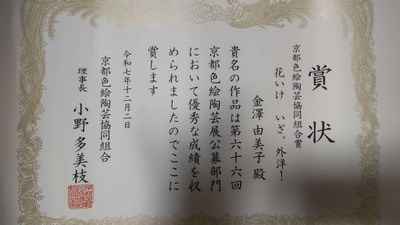 賞状
京都色絵陶芸協同組合賞
花いけ いざ、外洋!
金澤 由美子 殿
貴名の作品は第六十六回
京都色絵陶芸展公募部門
において優秀な成績を収
められましたのでここに
賞します
令和七年十二月二日
京都色絵陶芸協同組合
理事長 小野多美枝